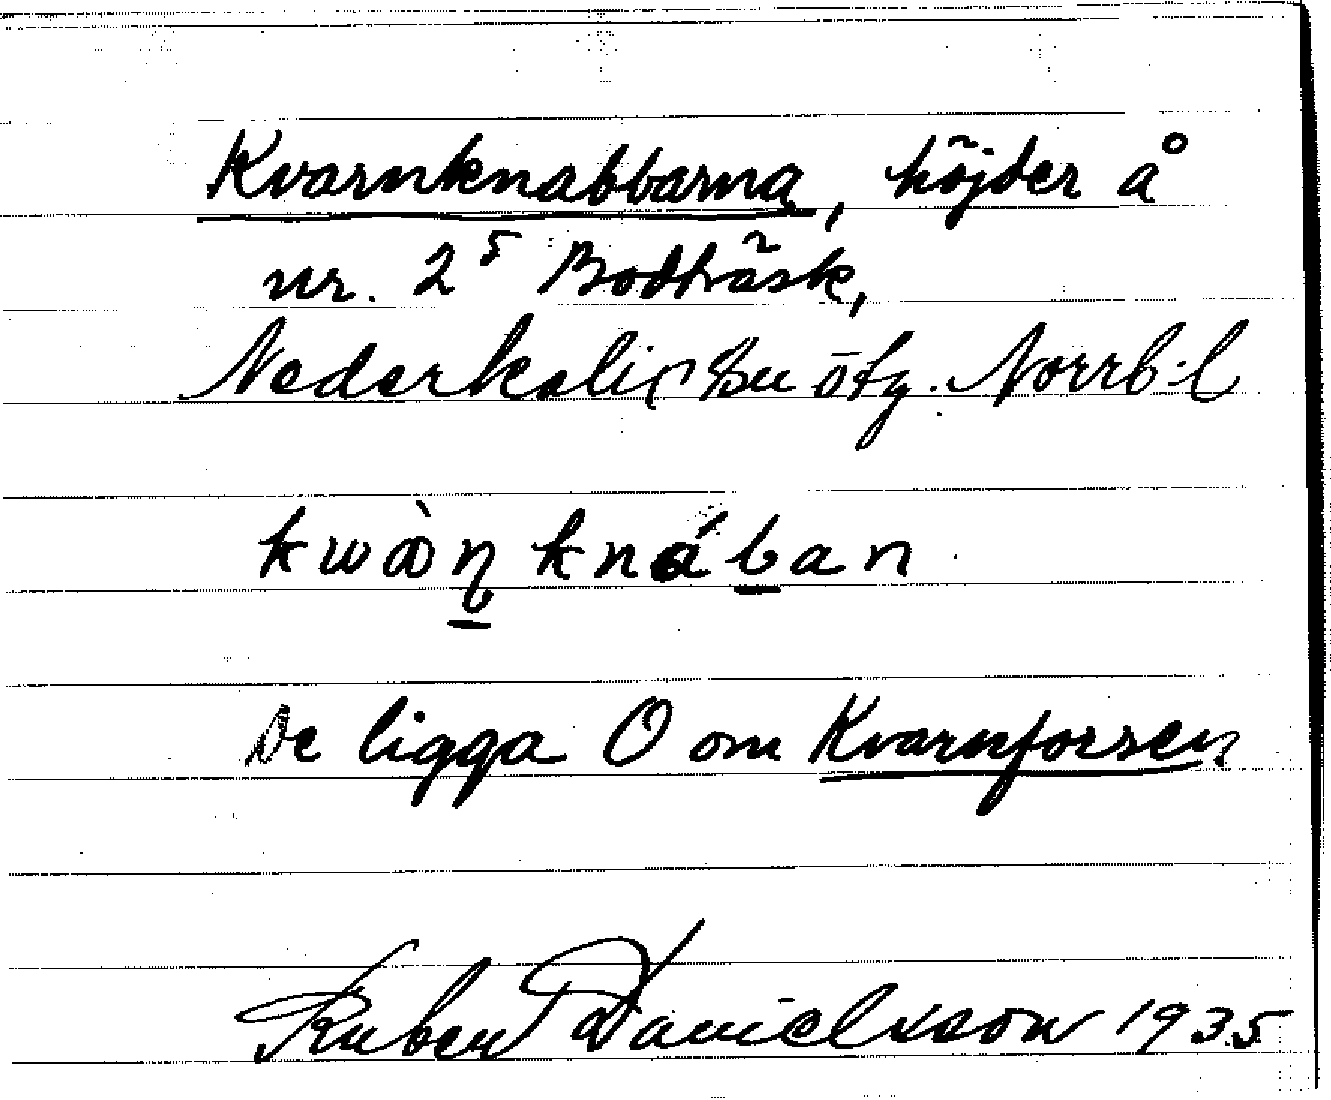 Kvarnknabbarna, höjder å
nr. 2⁵ Bodträsk,
Nederkalix sn ofg. Norrb. l
kwὰṇ knában.
De ligga O om Kvarnforsen
Ruben Danielsson 1935